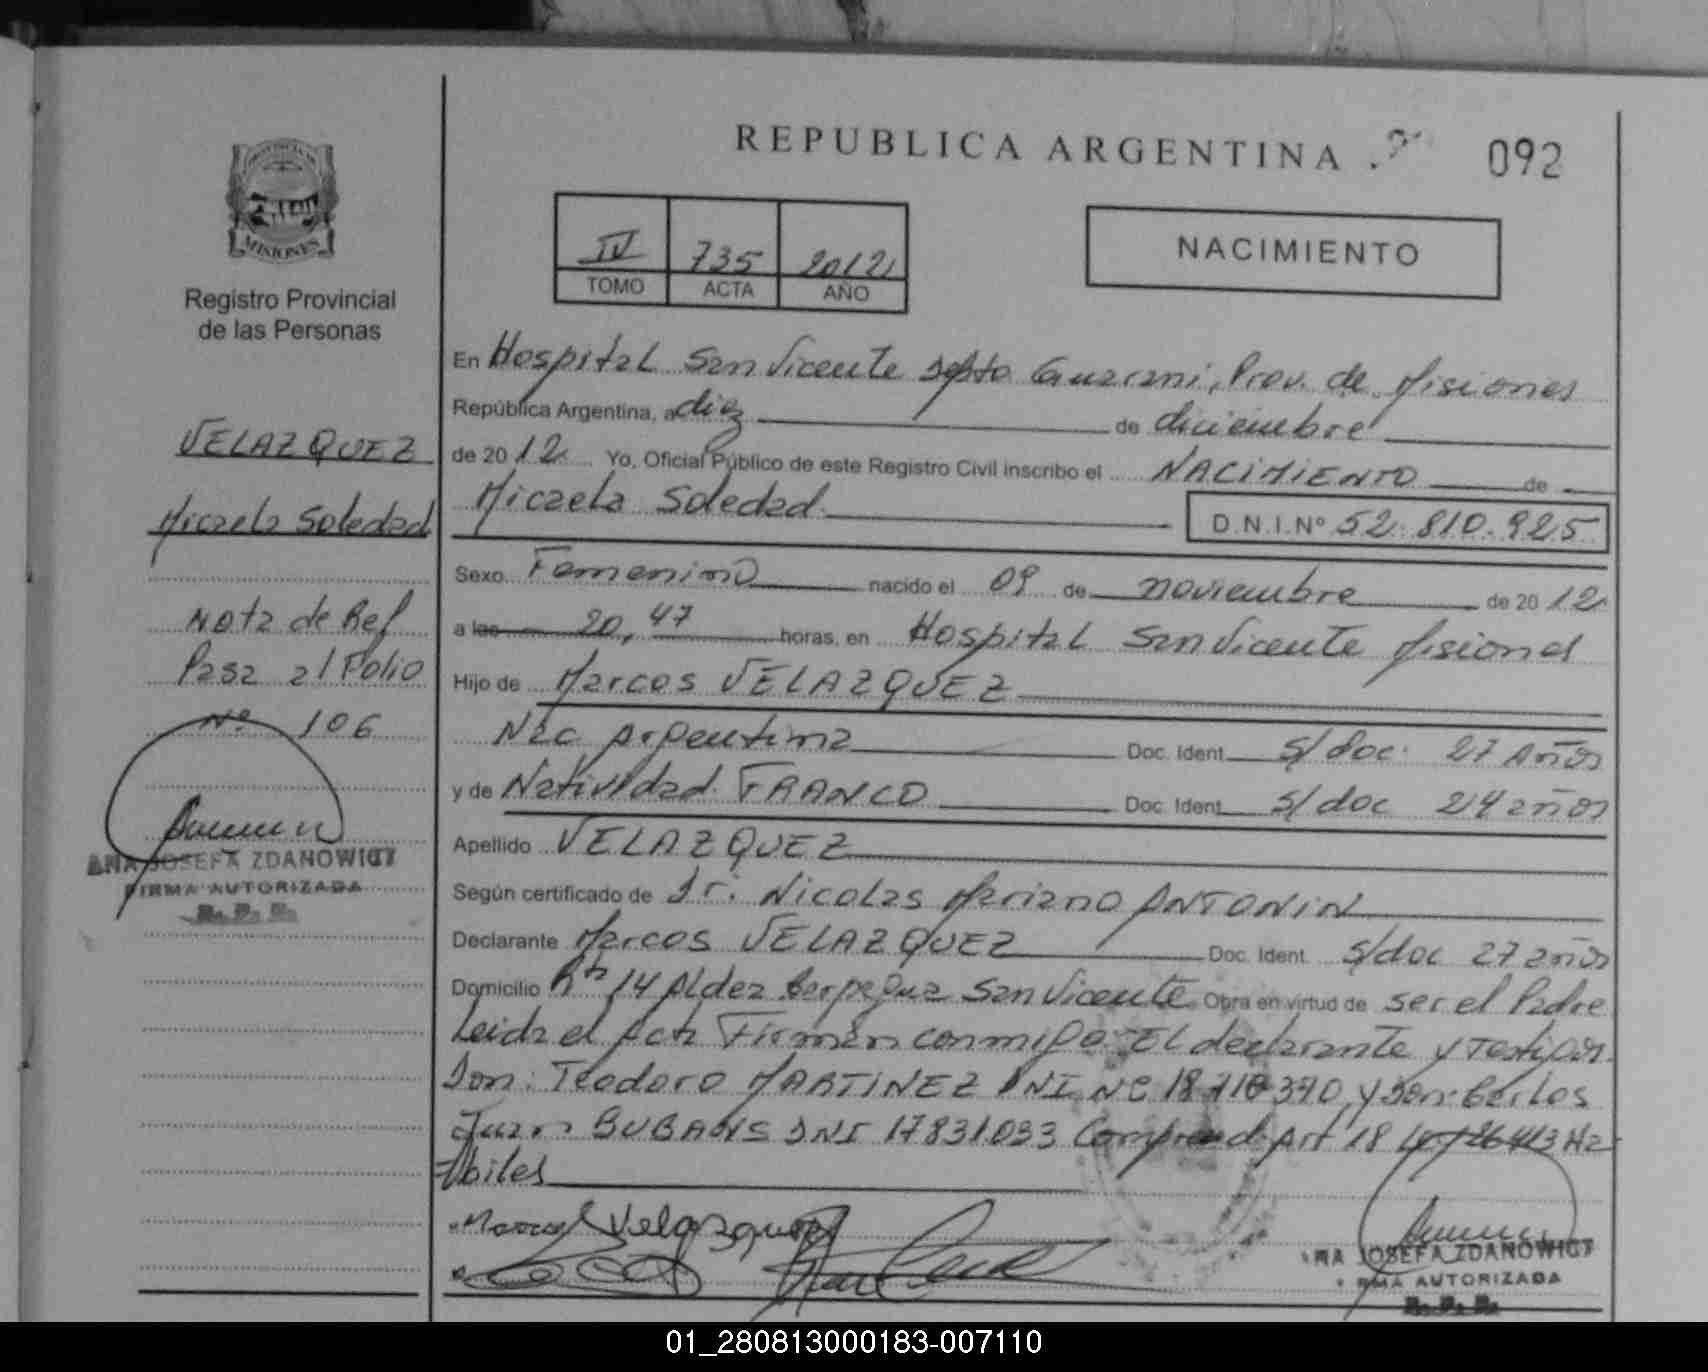 REPUBLICA ARGENTINA
092
PROVINCIA DE
MISIONES
Registro Provincial
de las Personas
IV 735 2012
TOMO ACTA AÑO
NACIMIENTO
VELAZQUEZ
Micaela Soledad
Nota de Ref
Pasa al Folio
Nº 106
ANA JOSEFA ZDANOWICZ
FIRMA AUTORIZADA
En Hospital San Vicente Depto Guarani, Prov. de Misiones
República Argentina, a diez de diciembre
de 2012 Yo, Oficial Público de este Registro Civil inscribo el NACIMIENTO de
Micaela Soledad D.N.I.Nº 52.810.925
Sexo Femenino nacido el 09 de noviembre de 2012
a las 20,47 horas, en Hospital San Vicente Misiones
Hijo de Marcos VELAZQUEZ
Nac Argentina Doc. Ident. s/doc. 27 Años
y de Natividad FRANCO Doc. Ident. s/doc 24 años
Apellido VELAZQUEZ
Según certificado de Dr. Nicolas Mariano ANTONIN
Declarante Marcos VELAZQUEZ Doc. Ident. s/doc 27 años
Domicilio Rta 14 Aldea San Vicente Obra en virtud de ser el Padre
Leida el Acta Firman conmigo El declarante y Testigos
Don: Teodoro MARTINEZ DNI Nº 370 y Don: Carlos
Juan DNI 17831033 Comprend. Art 18 Ley 26413 Ha-
biles
Marcos Velazquez
ANA JOSEFA ZDANOWICZ
FIRMA AUTORIZADA
01_280813000183-007110